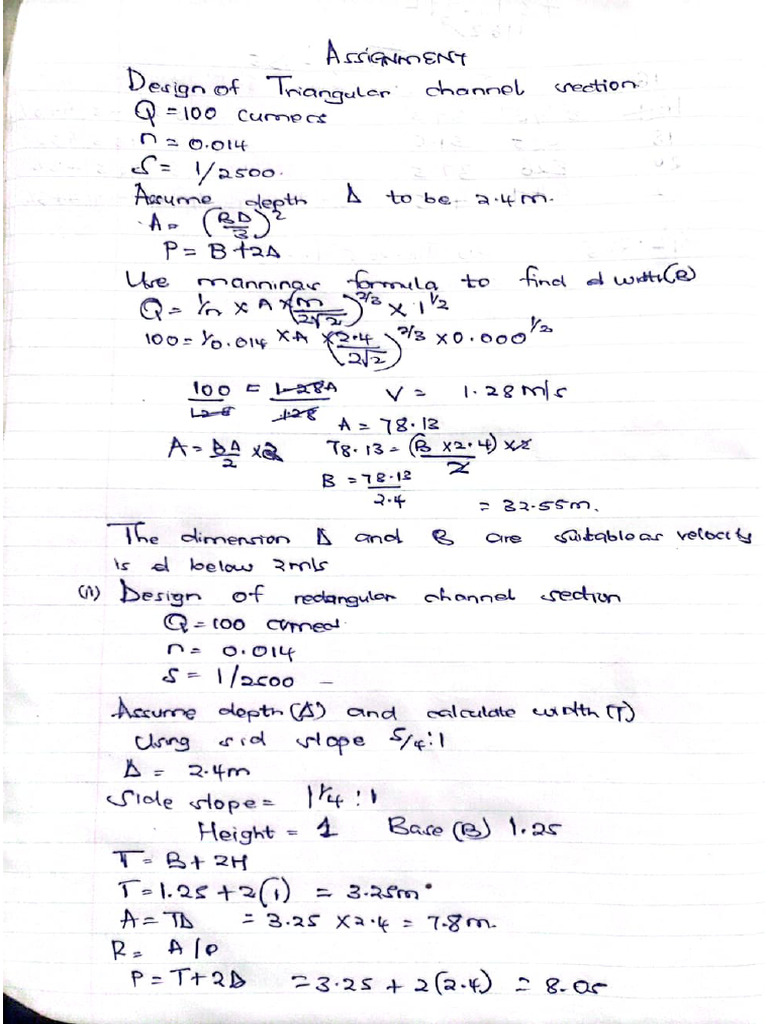 ASSIGNMENT
Design of Triangular channel section
Q = 100 cumecs
n = 0.014
S = 1/2500.
Assume depth D to be 2.4m.
A = (BD/3)^2
P = B + 2D
Use mannings formula to find d width(B)
Q = 1/n × A × (m/2√2)^2/3 × 1^1/2
100 = 1/0.014 × A × (2.4/2√2)^2/3 × 0.000^1/2
100/1.28 = 1.28A/1.28 V = 1.28m/s
A = 78.13
A = BD/2 × 2 78.13 = (B × 2.4)/2 × 2
B = 78.13/2.4 = 32.55m.
The dimension D and B are suitable as velocity
is d below 2m/s
(ii) Design of rectangular channel section
Q = 100 cumecs
n = 0.014
S = 1/2500 –
Assume depth (D) and calculate width (T)
Using sid slope 5/4:1
D = 2.4m
Side slope = 1 1/4 : 1
Height = 1 Base (B) 1.25
T = B + 2H
T = 1.25 + 2(1) = 3.25m
A = TD = 3.25 × 2.4 = 7.8m.
R = A/P
P = T + 2D = 3.25 + 2(2.4) = 8.05